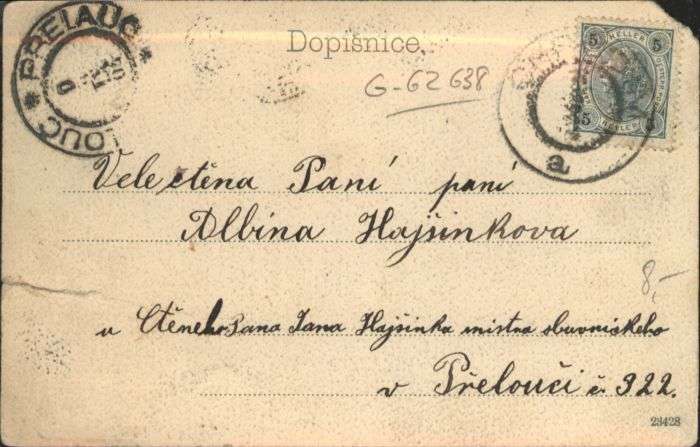 PŘELAUČ *
* LOUČ
Dopisnice.
G-62638
5 HELLER 5
5 HELLER
a
Velectěna Paní paní
Albína Hajšinkova
8,-
u Ctěneho Pana Jana Hajšinka mistra obuvnickeho
v Přelouči č. 322.
23428